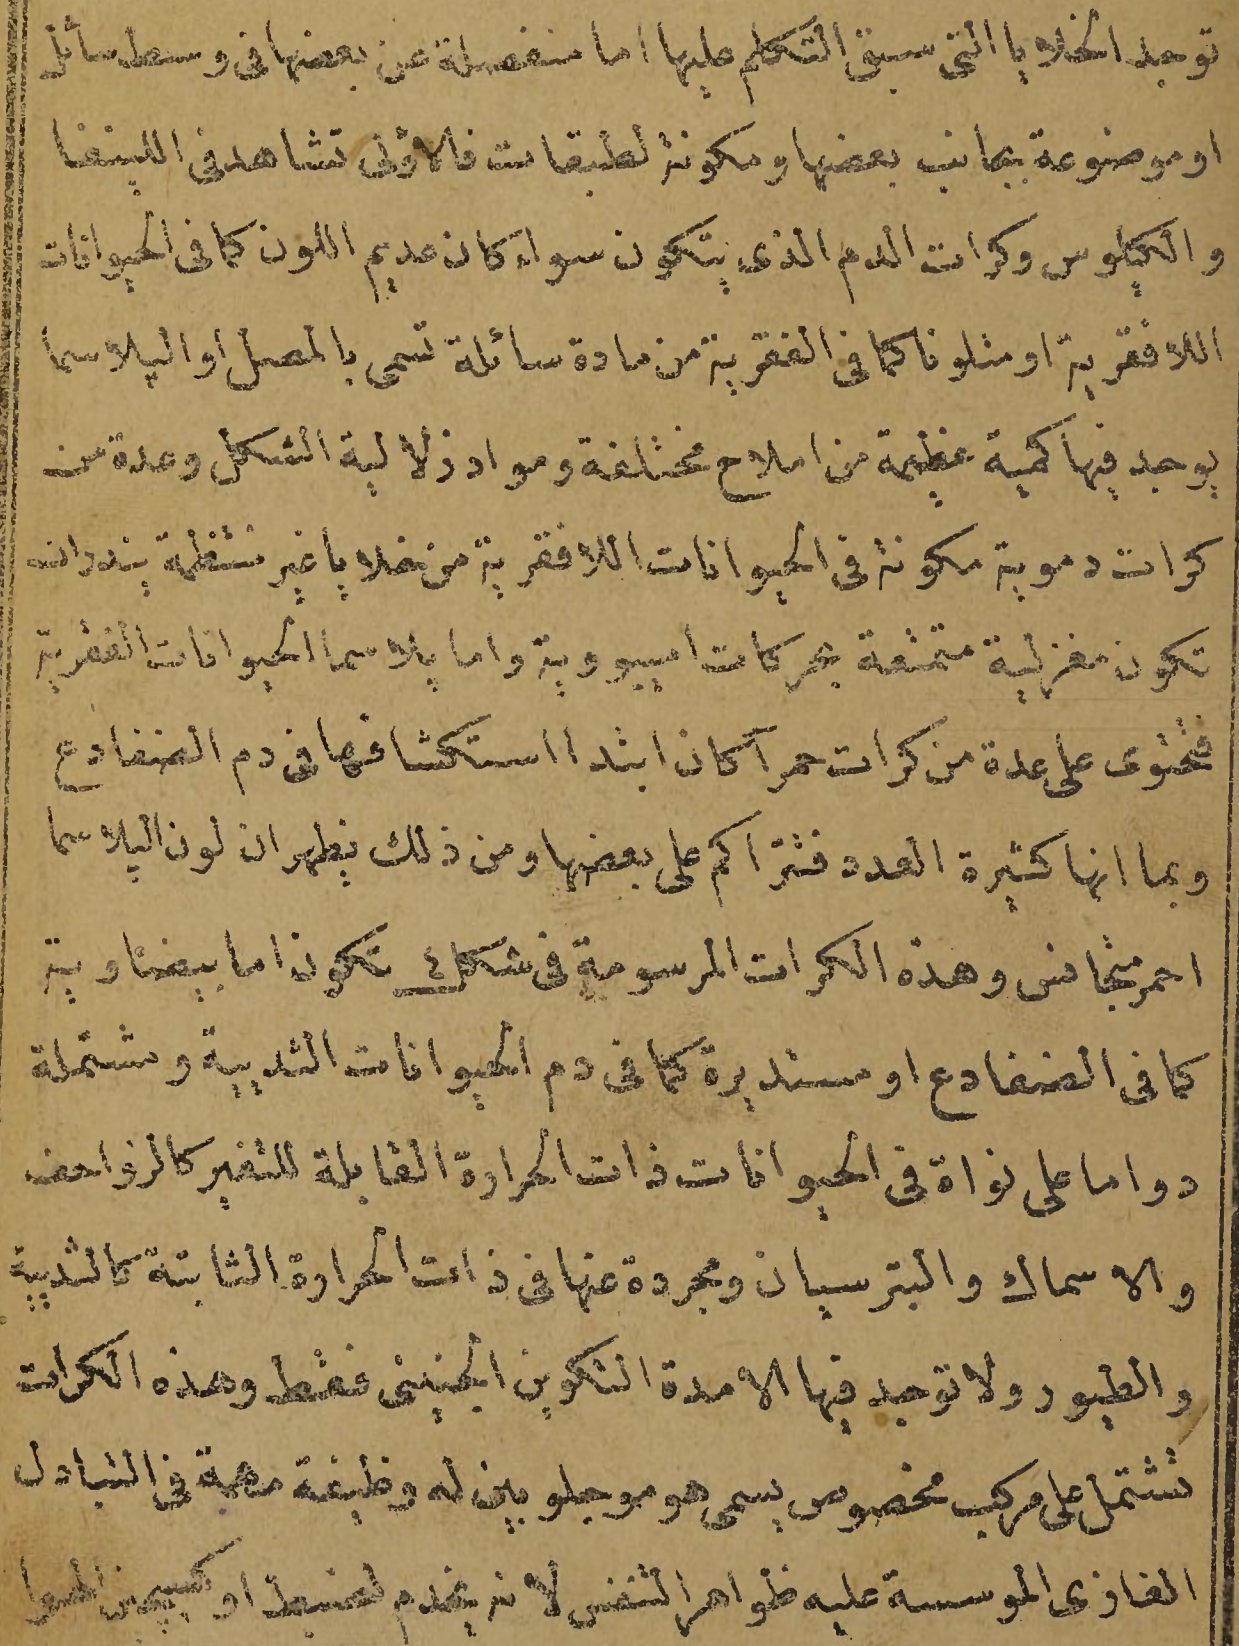 توجد الخلايا التى سبق التكلم عليها اما منفصلة عن بعضها فى وسط سائل
او موضوعة بجانب بعضها ومكونة لطبقات فالاولى تشاهد فى اللينفا
والكيلوس وكرات الدم الذى يتكون سواء كان عديم اللون كما فى الحيوانات
اللافقرية او متلونا كما فى الفقرية من مادة سائلة تسمى بالمصل او البلاسما
يوجد فيها كمية عظيمة من املاح مختلفة ومواد زلالية الشكل وعدة من
كرات دموية مكونة فى الحيوانات اللافقرية من خلايا غير منتظمة يندر ان
تكون مغزلية متمتعة بحركات اميبووية واما بلاسما الحيوانات الفقرية
فتحتوى على عدة من كرات حمرآ كان ابتدا استكشافها فى دم الضفادع
وبما انها كثيرة العدد فتتراكم على بعضها ومن ذلك يظهر ان لون البلاسما
احمر متجانس وهذه الكرات المرسومة فى شكل ٤ تكون اما بيضاوية
كما فى الضفادع او مستديرة كما فى دم الحيوانات الثديية ومشتملة
دواما على نواة فى الحيوانات ذات الحرارة القابلة للتغير كالزواحف
والاسماك والبترسيان ومجردة عنها فى ذات الحرارة الثابتة كالثديية
والطيور ولا توجد فيها الا مدة التكوين الجنينى فقط وهذه الكرات
تشتمل على مركب مخصوص يسمى هوموجلوبين له وظيفة مهمة فى التبادل
الغازى الموسسة عليه ظواهر التنفس لانه يخدم لضبط اوكسيجين الهوا